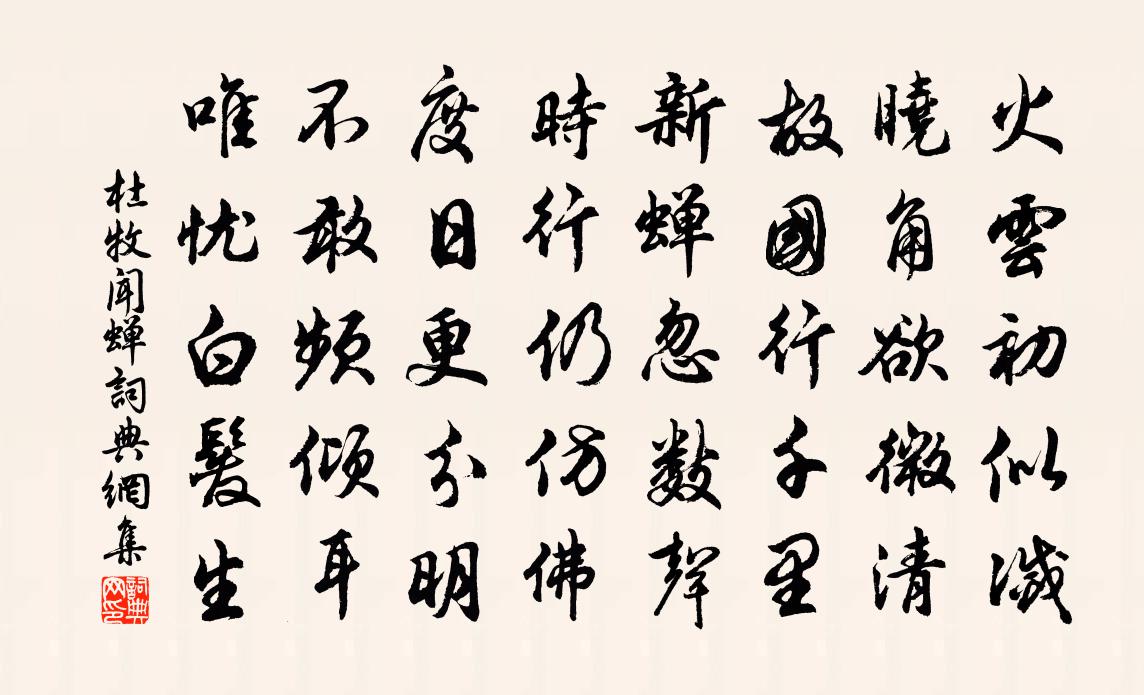 火雲初似滅
曉角欲微清
故國行千里
新蟬忽數聲
時行仍仿佛
度日更分明
不敢頻傾耳
唯忧白髮生
杜牧聞蟬詞典網集
詞典網印